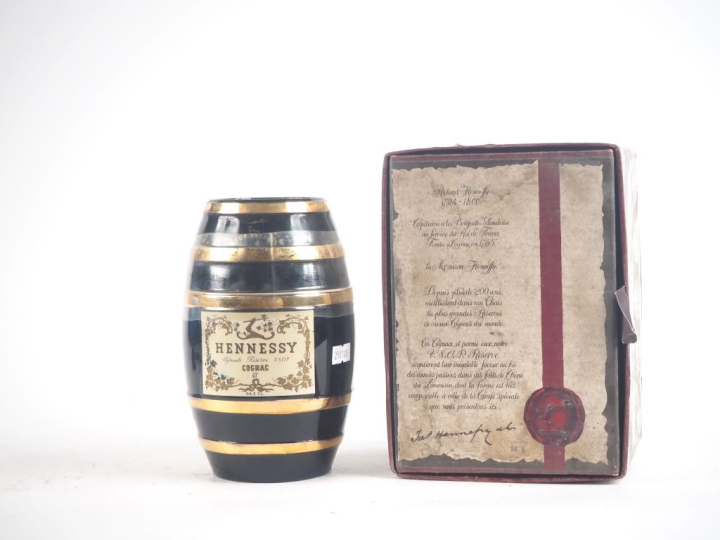 HENNESSY
Réserve VSOP
COGNAC
Richard Hennessy
1724-1800
Capitaine à la Brigade Irlandaise
au service du Roi de France
Fonda à Cognac, en 1765
la Maison Hennessy.
Depuis plus de 200 ans,
vieillissent dans nos Chais
les plus grandes Réserves
de vieux Cognacs du monde.
Ces Cognacs, et parmi eux notre
V.S.O.P. Réserve
acquièrent leur inégalable saveur au fil
des années passées dans des fûts de Chêne
du Limousin, dont la forme est très
comparable à celle de la Carafe spéciale
que nous présentons ici.
Jas Hennessy & Co